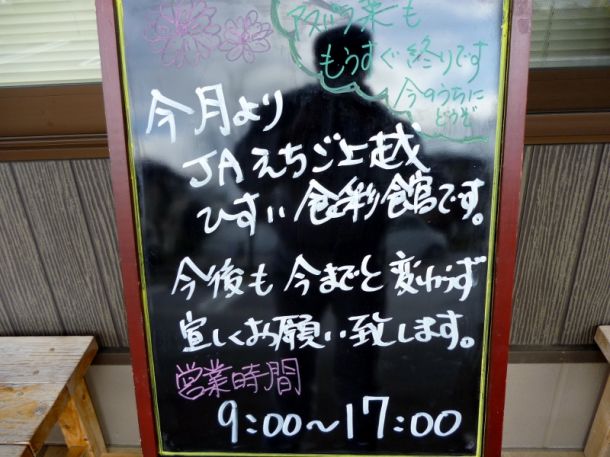 アスパラ菜も
もうすぐ終りです
今のうちに
どうぞ
今月より
JAえちご上越
ひすい食彩館です。
今後も今までと変わらず
宜しくお願い致します。
営業時間
9:00～17:00